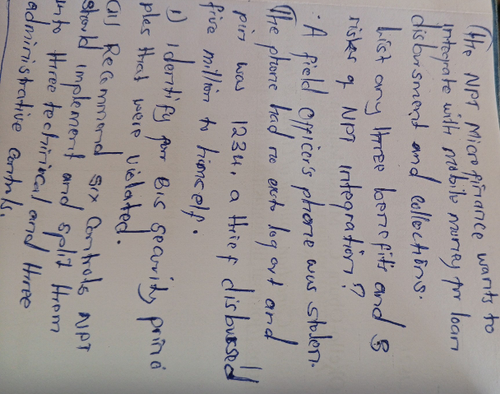 The NPT Microfinance wants to
integrate with mobile money for loan
disbursment and collections.
List any three benefits and 3
risks of NPT integration?
A field Officer's phone was stolen.
The phone had no auto log out and
pin was 1234, a thief disbursed
five million to himself.
i) Identify for BIS Security princi
ples that were violated.
(ii) Recommend six controls NPT
should implement and split them
into three technical and three
administrative controls.